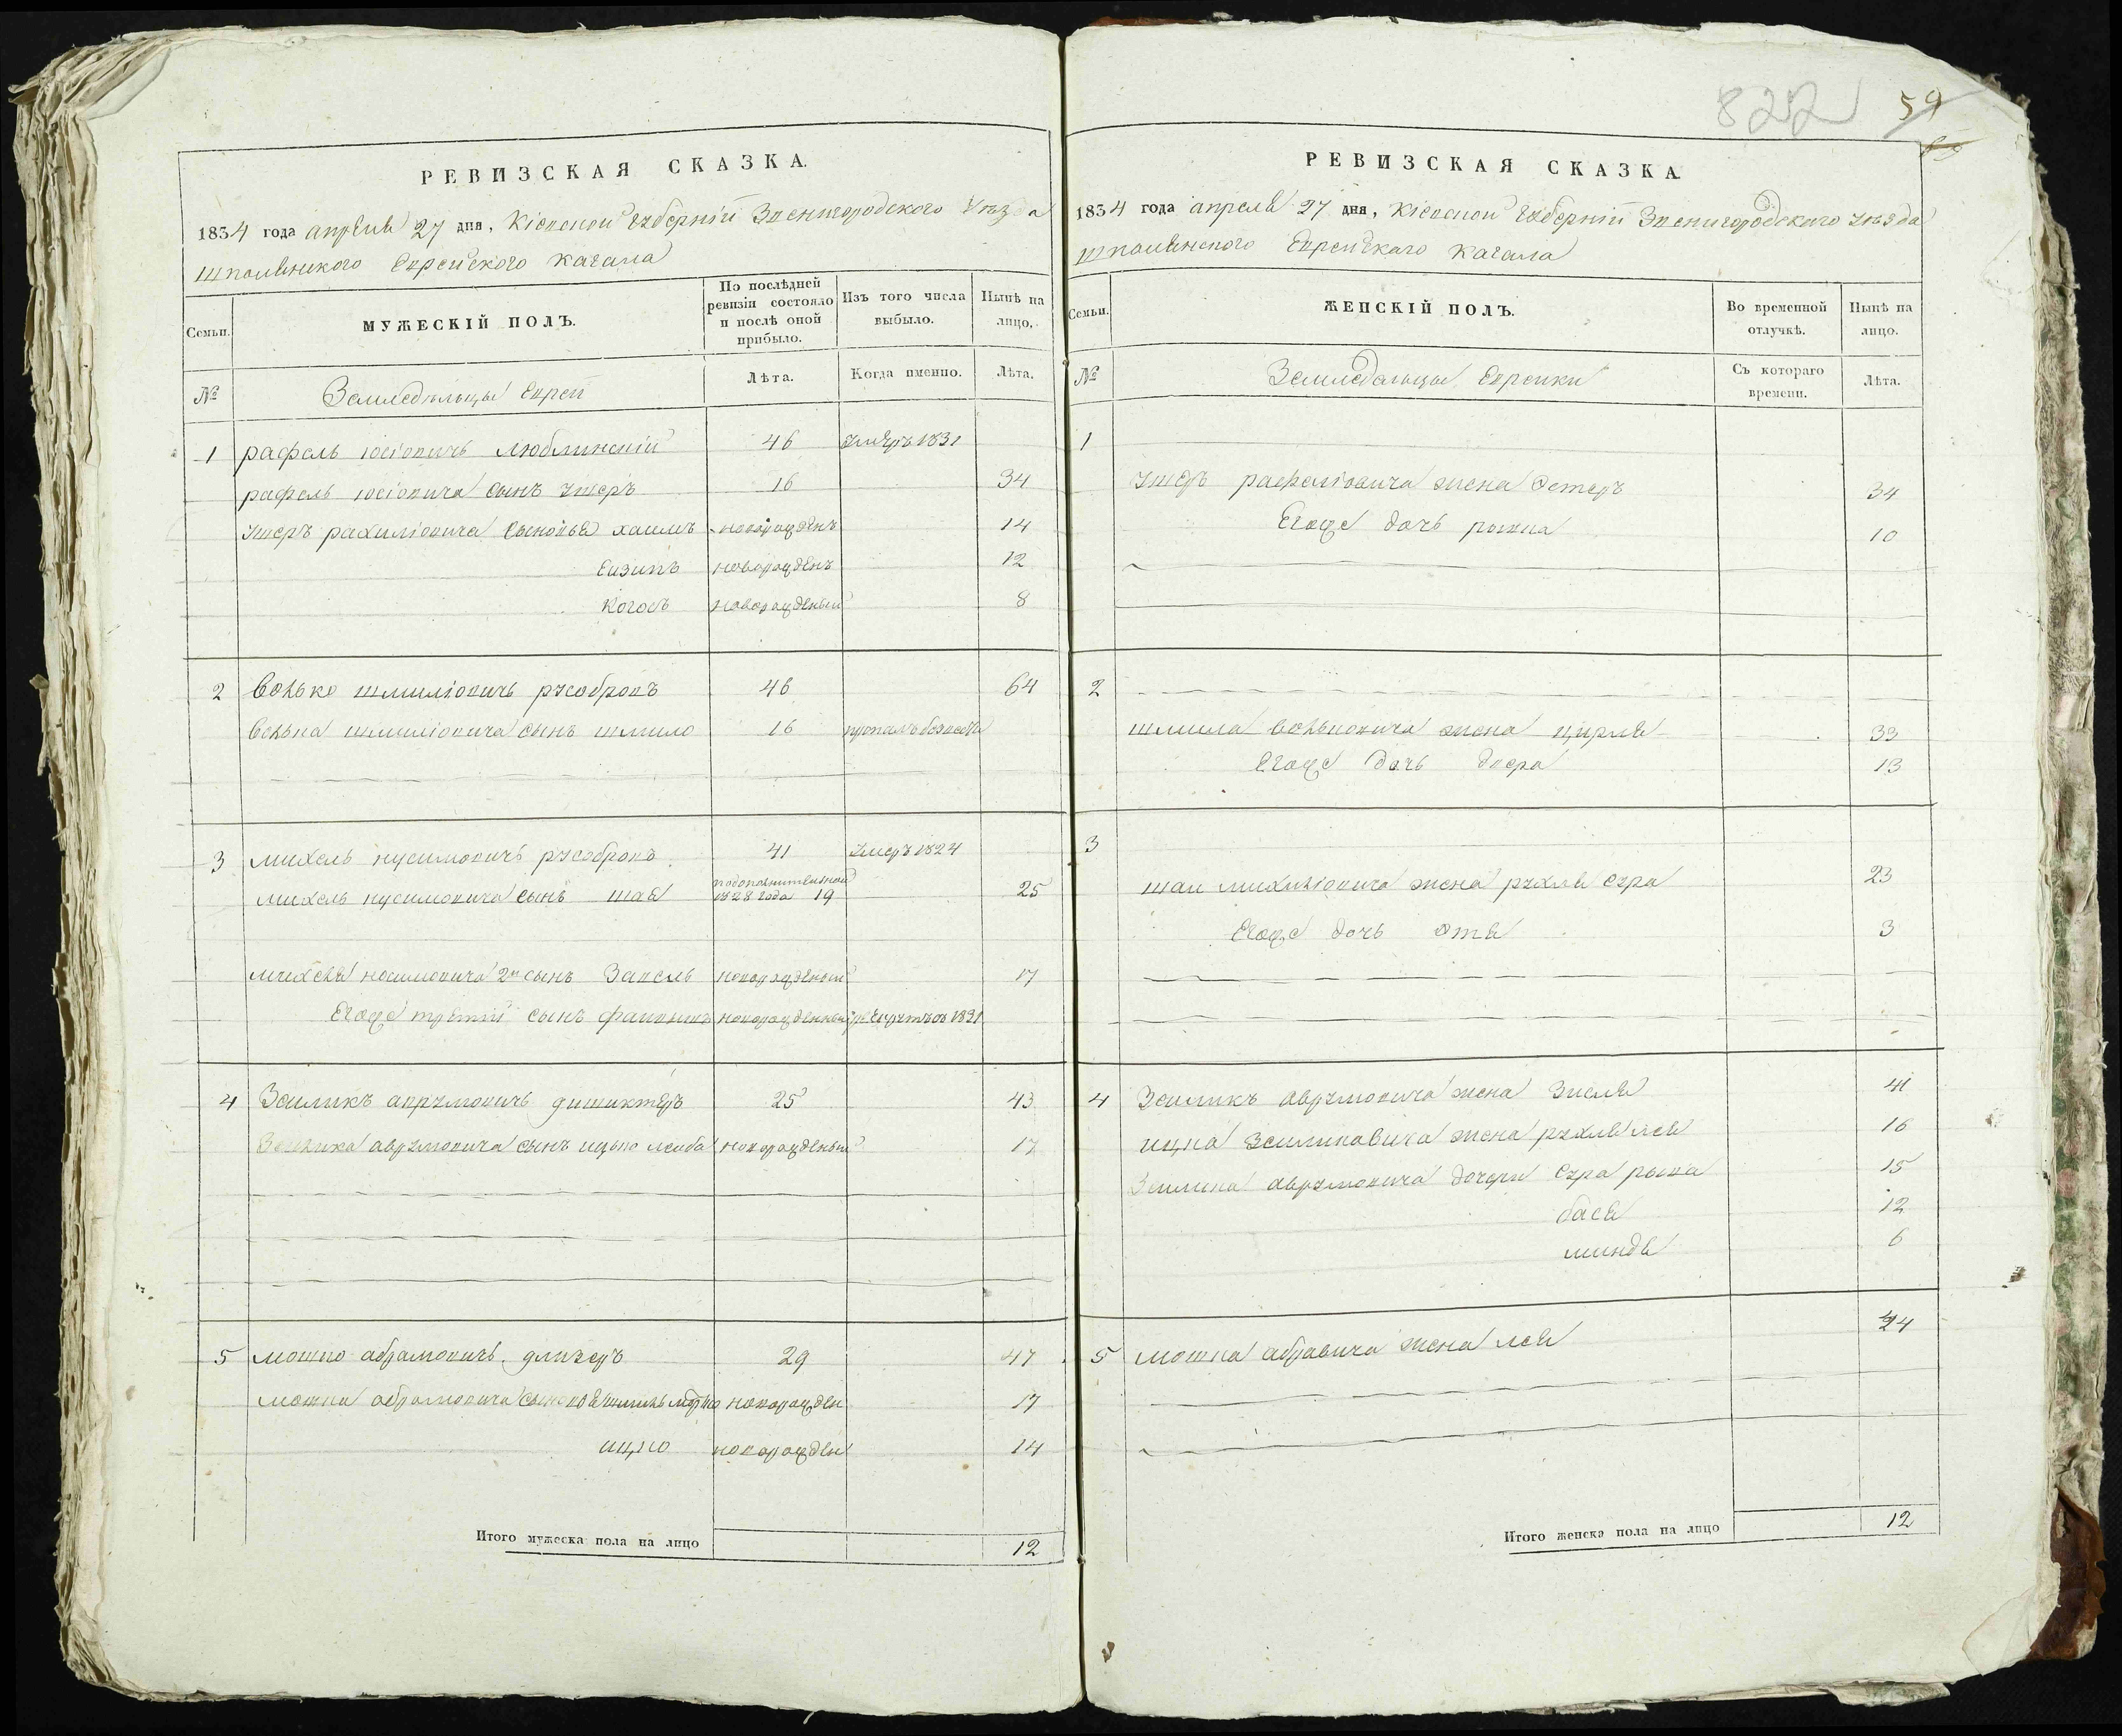 822 59
РЕВИЗСКАЯ СКАЗКА.
1834 года апреля 27 дня, Кіевской Губерніи Звенигородского Уѣзда
шполянского Еврейского кагала
Семьи.
МУЖЕСКІЙ ПОЛЪ.
По послѣдней ревизіи состояло и послѣ оной прибыло.
Изъ того числа выбыло.
Нынѣ на лицо.
№
Земледѣльцы Евреи
Лѣта.
Когда именно.
Лѣта.
1 рафель іосіовичъ люблинскій 46 умеръ 1831
рафель іосіовича сынъ ушеръ 16 34
ушеръ рахиліовича сыновья хаимъ новорожденъ 14
Еизикъ новорожденъ 12
новорожденый 8
2 Волько шмиліовичъ русобровъ 46 64
Волька шмиліовича сынъ шмило 16
3 михель нусимовичъ русобровъ 41 умеръ 1824
михель нусимовича сынъ шая подополнителной 1828 года 19 25
михеля носимовича 2й сынъ Завель новорожденый 17
Егоже третий сынъ новорожденый 1831
4 Зеиликъ аврумовичъ дишиктеръ 25 43
Зеилика аврумовича сынъ ицько леиба новорожденый 17
5 мошко абрамовичъ длизеръ 29 47
мошка абрамовича сыновья новорожден 17
ицко новорожден 14
Итого мужеска пола на лицо 12
РЕВИЗСКАЯ СКАЗКА
1834 года апреля 27 дня, Кіевской Губерніи Звенигородского уѣзда
шполянского Еврейскаго кагала
Семьи.
ЖЕНСКІЙ ПОЛЪ.
Во временной отлучкѣ.
Нынѣ на лицо.
№
Земледѣльцы Еврейки
Съ котораго времени.
Лѣта.
1
ушеръ рафеліовича жена Эстеръ 34
Егоже дочь рывка 10
2
шмила вольковича жена цирля 33
Егоже дочь двера 13
3
шаи михиліовича жена рухля сура 23
Егоже дочь этя 3
4 Зеиликъ аврумовича жена Зисля 41
ицка зеиликовича жена рухля лея 16
Зеилика аврумовича дочери сура рывка 15
бася 12
миндя 6
5 мошка абравича жена лея 24
Итого женска пола на лицо 12